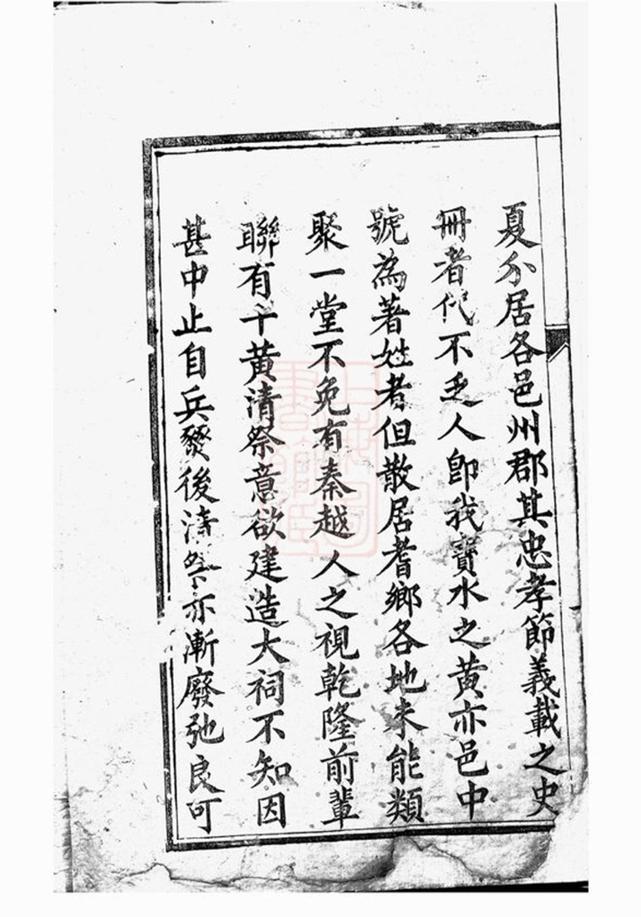 夏分居各邑州郡其忠孝節義載之史
冊者代不乏人即我寶水之黃亦邑中
號為著姓者但散居耆鄉各地未能類
聚一堂不免有秦越人之視乾隆前輩
聯有千黃清祭意欲建造大祠不知因
甚中止自兵燹後清祭亦漸廢弛良可